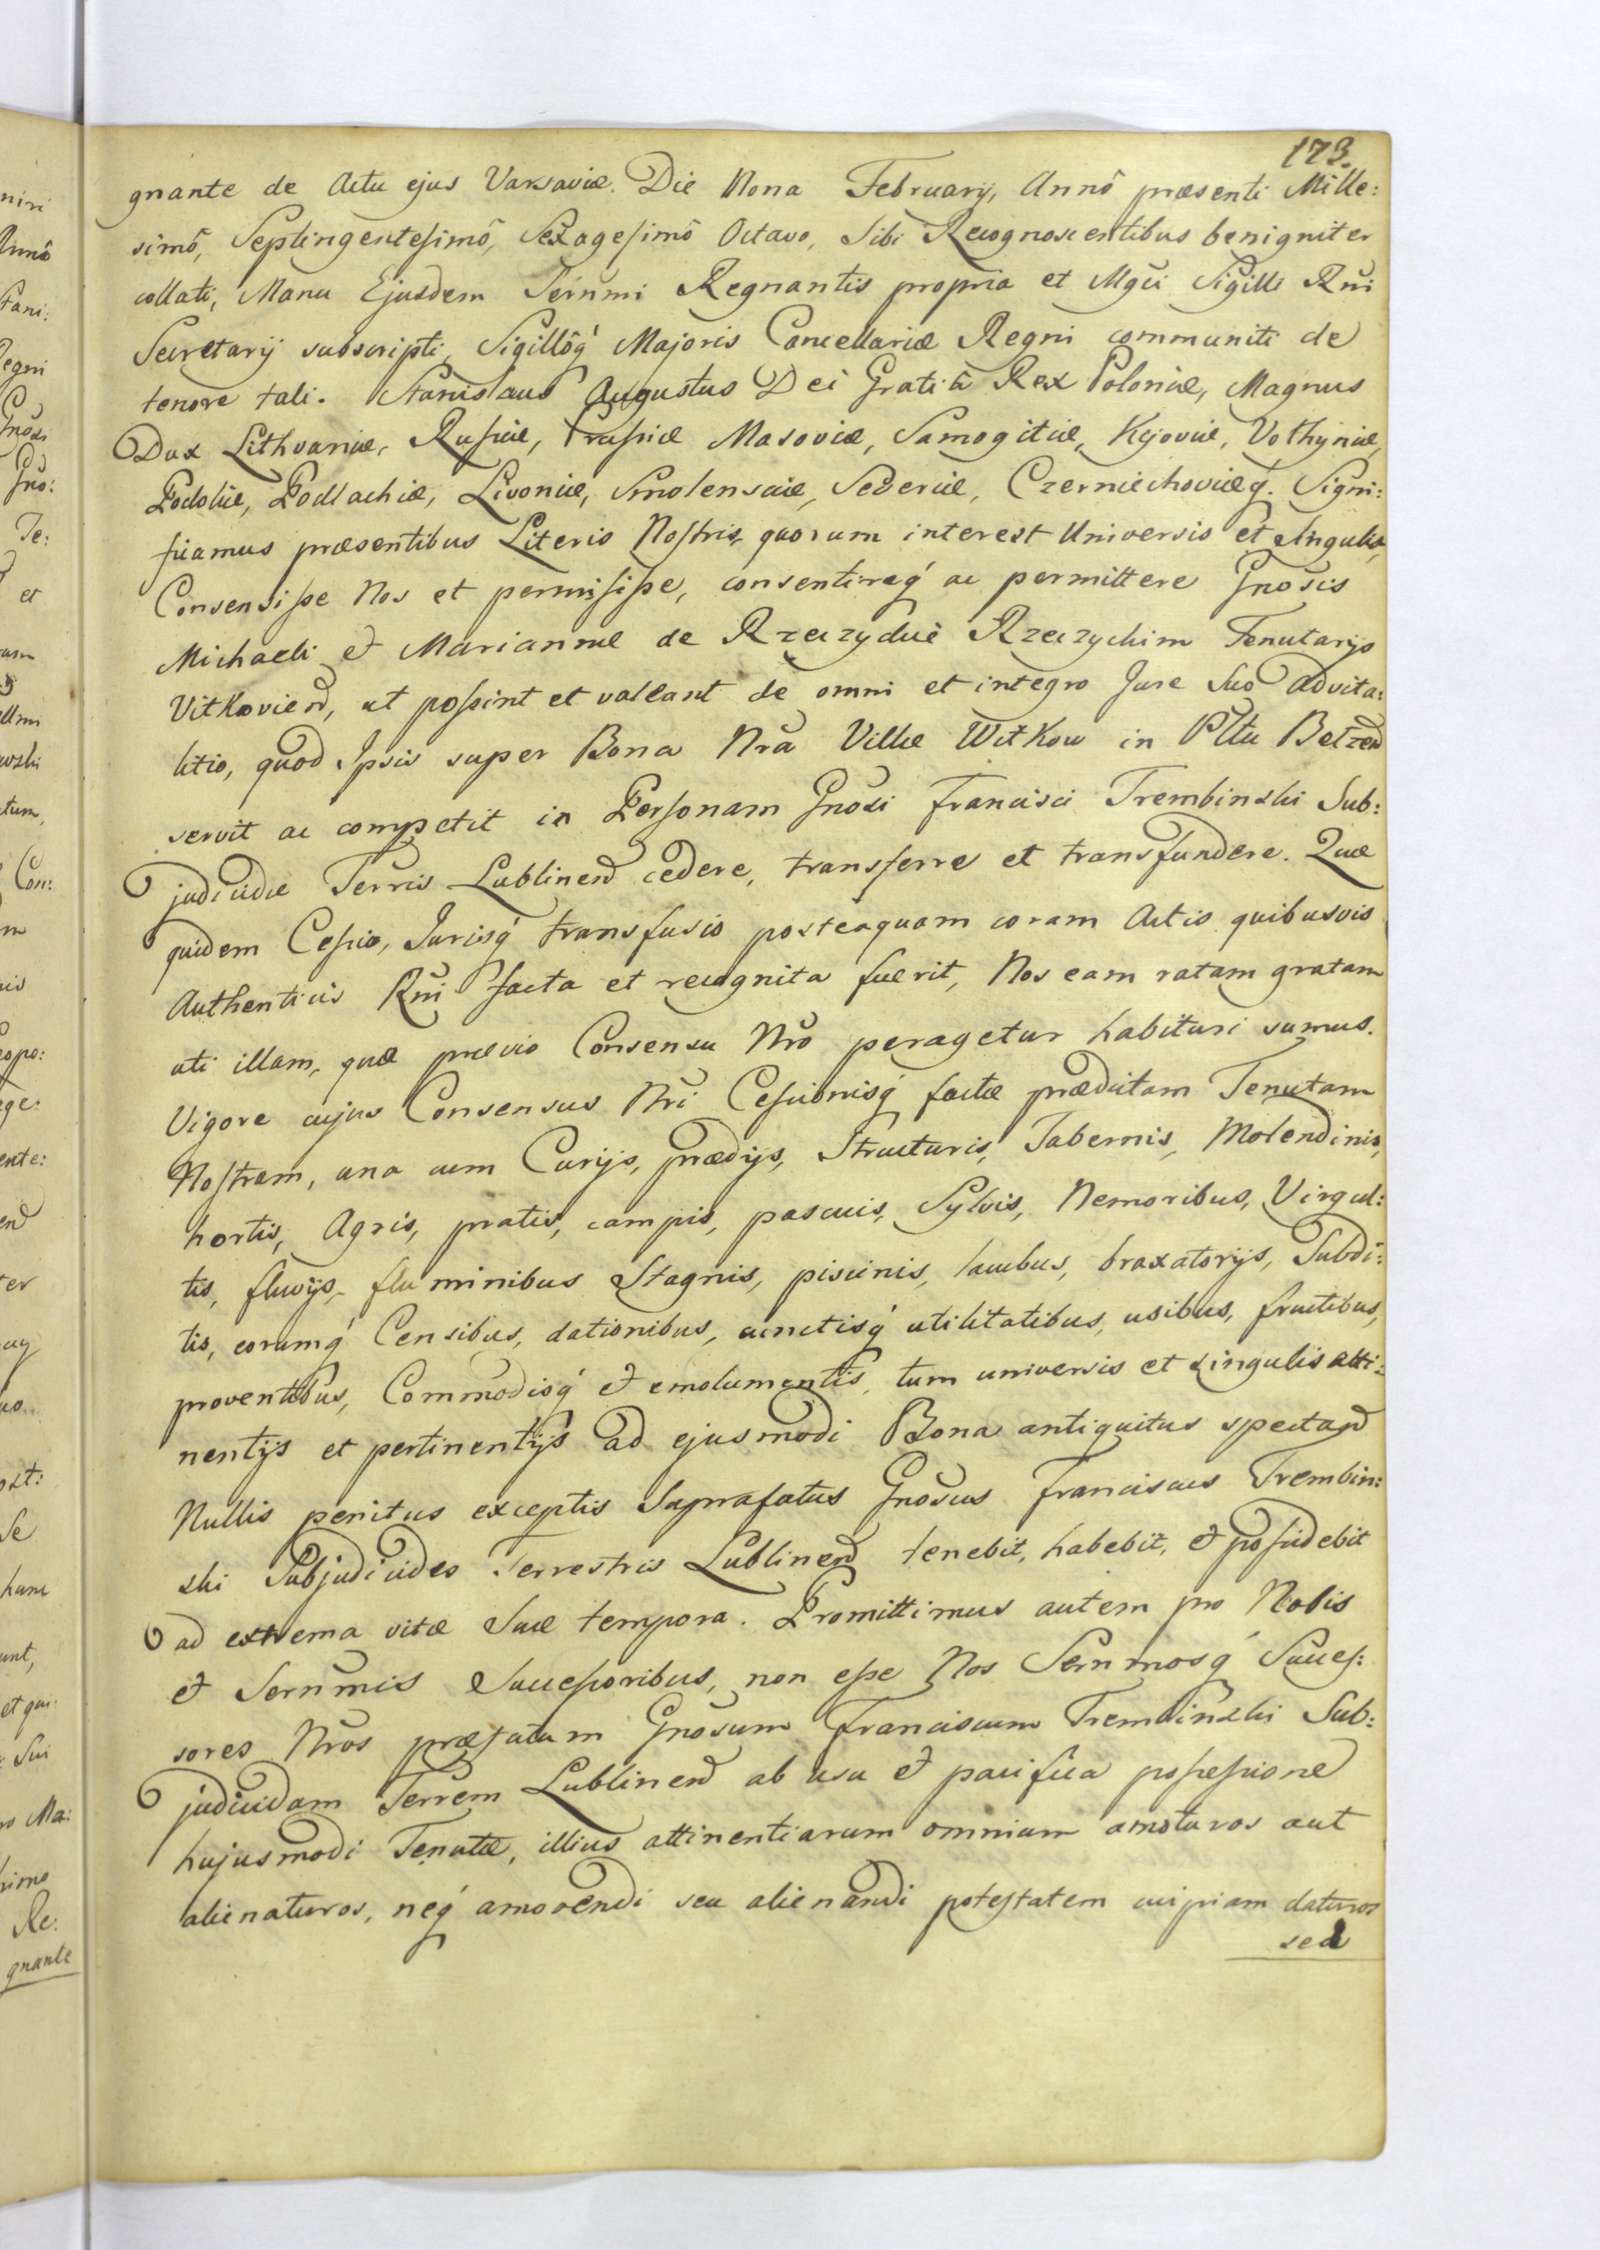 173.
gnante de Actu ejus Varsaviæ. Die Nona February, Annô præsenti Mille:
simô, Septingentesimô, Sexagesimô Octavo, Sibi Recognoscentibus benigniter
collati, Manu Ejusdem Sernmi Regnantis propria et Mgci Sigilli Rni
Secretarij subscripti, Sigillôq́ Majoris Cancellariæ Regni communiti de
tenore tali. Stanislaus Augustus Dei Gratiâ Rex Poloniæ, Magnus
Dux Lithvaniæ, Russiæ, Prussiæ Masoviæ, Samogitiæ, Kijoviæ, Volhyniæ,
Podoliæ, Podlachiæ, Livoniæ, Smolensciæ, Severiæ, Czerniechoviæq́. Signi:
ficamus præsentibus Literis Nostris, quorum interest Universis et Singulis,
Consensisse Nos et permisisse, consentireq́ ac permittere Gnosis
Michaeli et Mariannæ de Rzeczyckie Rzeczyckim Tenutarijs
Vitkoviend, ut possint et valeant de omni et integro Jure Suo advita:
litio, quod Ipsis super Bona Nra Villæ Witkow in Pltu Belzend
servit ac competit in Personam Gnosi Francisci Trembinski Sub:
judicidæ Terris Lublinend cedere, transferre et transfundere. Quæ
quidem Cessio, Jurisq́ transfusio posteaquam coram Actis quibusvis
Authenticis Rni facta et recognita fuerit, Nos eam ratam gratam
uti illam, quæ prævio Consensu Nro peragetur habituri sumus.
Vigore cujus Consensus Nri Cessionisq́ factæ prædictam Tenutam
Nostram, una cum Curijs, prædijs, Structuris, Tabernis, Molendinis,
hortis, Agris, pratis, campis, pascuis, Sylvis, Nemoribus, Virgul:
tis, fluvijs, fluminibus Stagnis, piscinis, lacubus, braxatorijs, Subdi:
tis, eorumq́ Censibus, dationibus, cunctisq́ utilitatibus, usibus, fructibus,
proventibus, Commodisq́ et emolumentis, tum universis et singulis atti:
nentijs et pertinentijs ad ejusmodi Bona antiquitus spectand
Nullis penitus exceptis Suprafatus Gnosus Franciscus Trembin:
ski Subjudicides Terrestris Lublinend tenebit, habebit, et possidebit
ad extrema vitæ Suæ tempora. Promittimus autem pro Nobis
et Sernmis Successoribus, non esse Nos Sernmosq́ Succes:
sores Nros præfatum Gnosum Franciscum Trembinski Sub:
judicidam Terrem Lublinend ab usu et pacifica possessione
hujusmodi Tenutæ, illius attinentiarum omnium amoturos aut
alienaturos, neq́ amovendi seu alienandi potestatem cuipiam daturos
sed